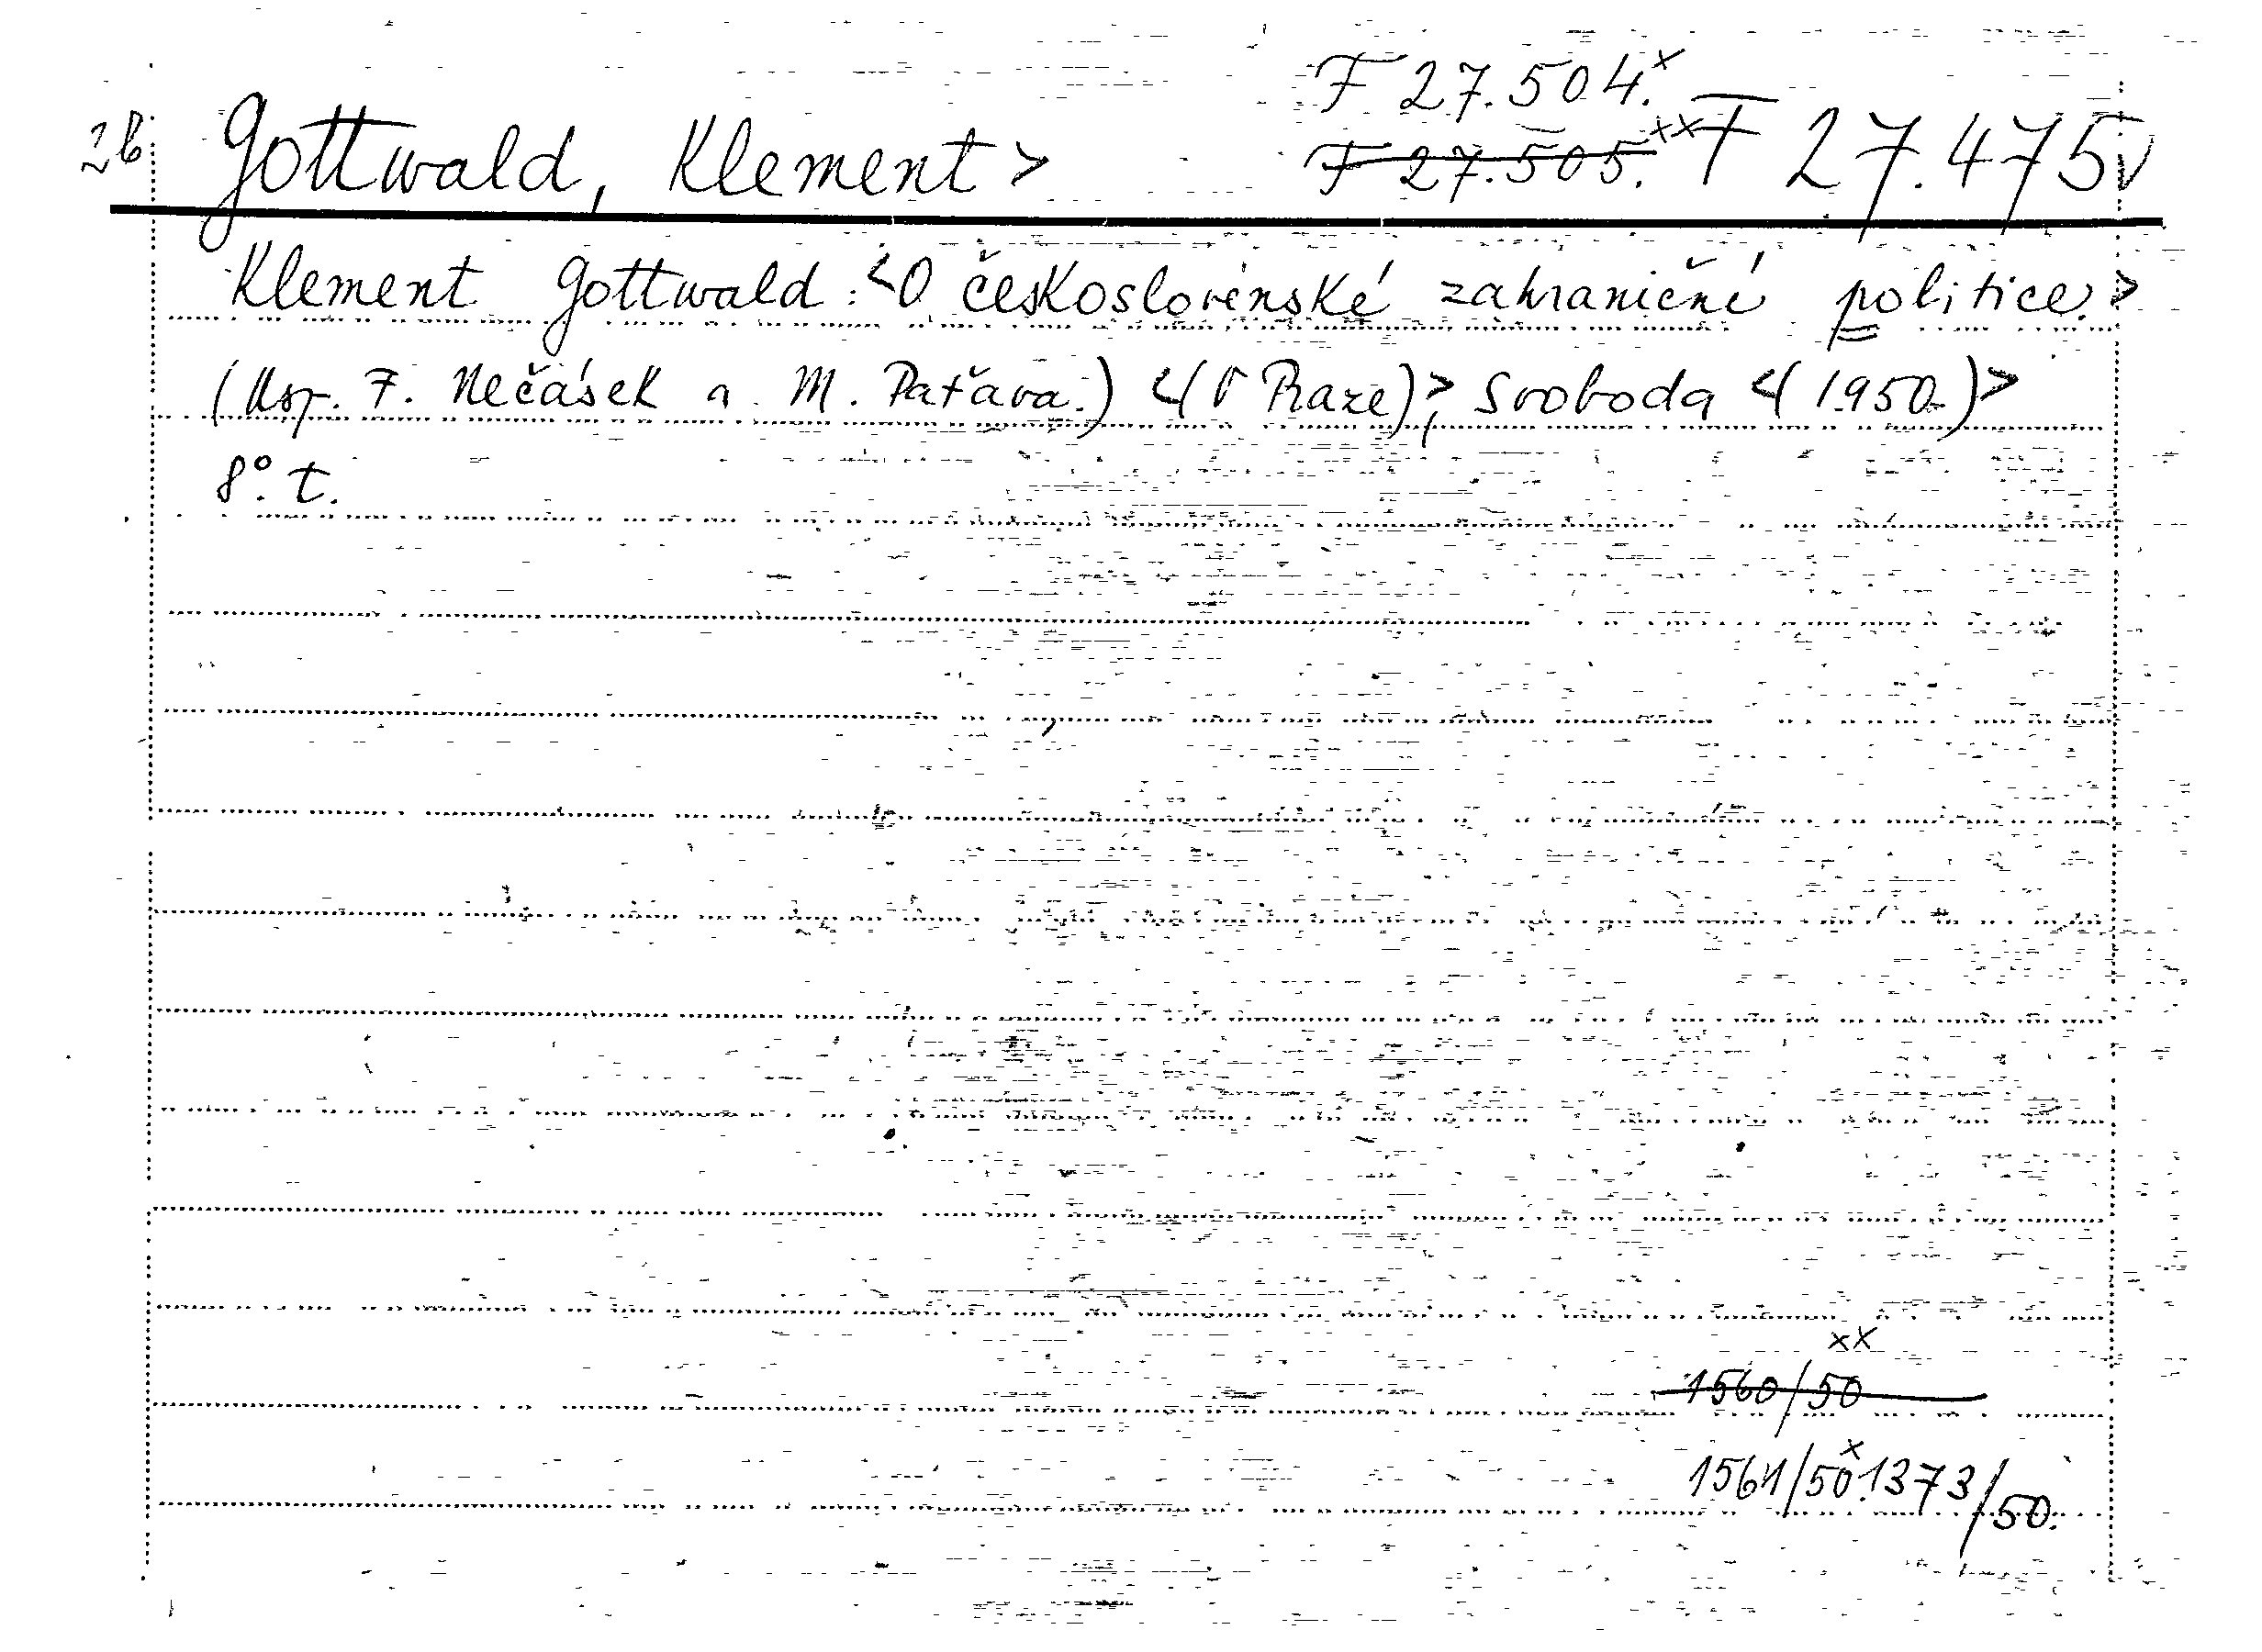 F 27.504.x
2b Gottwald, Klement > F 27.505.xx F 27.475 v
Klement Gottwald: <O československé zahraniční politice.>
(Usp. F. Nečásek a M. Paťava.) <(V Praze)>, Svoboda <(1950.)>
8°. t.
xx
1560/50
1561/50x.1373/50.